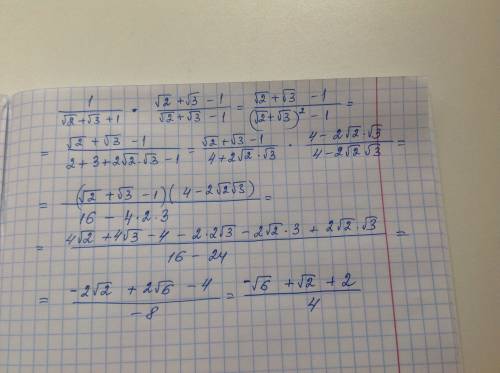 1/(√2 + √3 + 1) · (√2 + √3 - 1)/(√2 + √3 - 1) = (√2 + √3 - 1)/((√2 + √3)² - 1) =
= (√2 + √3 - 1)/(2 + 3 + 2√2·√3 - 1) = (√2 + √3 - 1)/(4 + 2√2·√3) · (4 - 2√2·√3)/(4 - 2√2√3) =
= (√2 + √3 - 1)(4 - 2√2√3)/(16 - 4·2·3) =
= (4√2 + 4√3 - 4 - 2·2√3 - 2√2·3 + 2√2·√3)/(16 - 24) =
= (-2√2 + 2√6 - 4)/(-8) = (-√6 + √2 + 2)/4